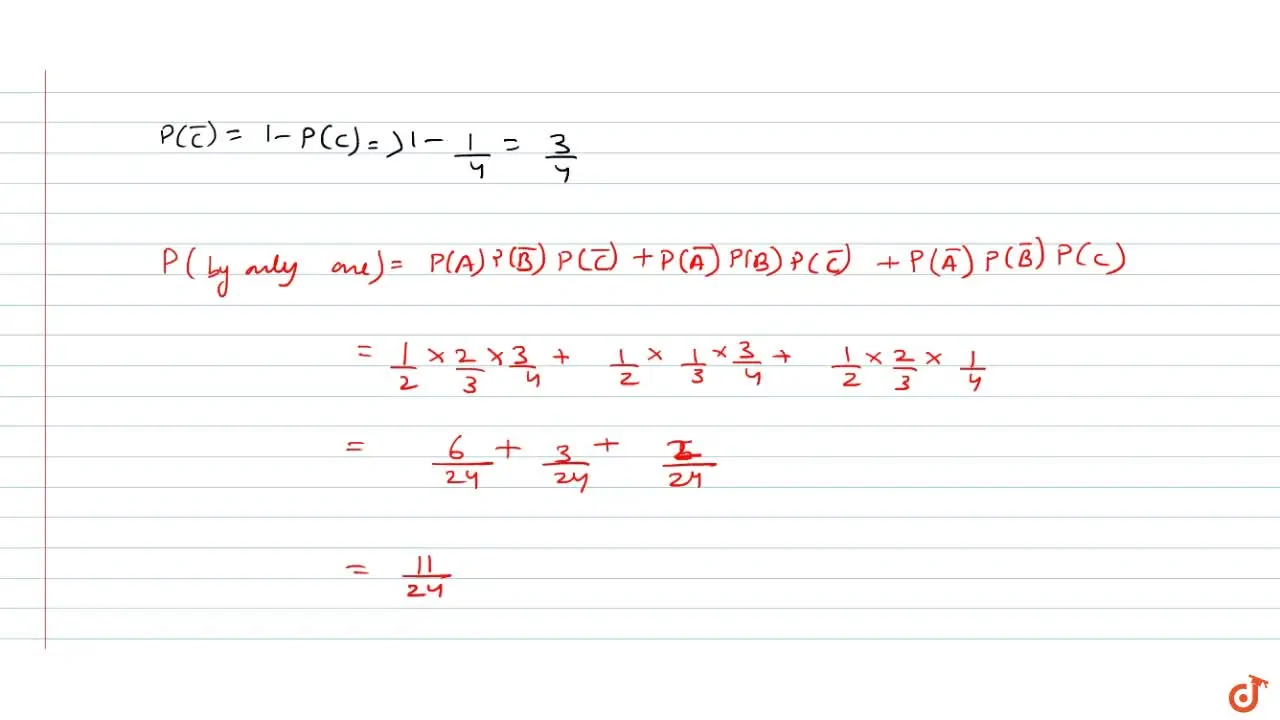 P(C̅) = 1 - P(C) = > 1 - 1/4 = 3/4
P( by only one) = P(A) P(B̅) P(C̅) + P(A̅) P(B) P(C̅) + P(A̅) P(B̅) P(C)
= 1/2 × 2/3 × 3/4 + 1/2 × 1/3 × 3/4 + 1/2 × 2/3 × 1/4
= 6/24 + 3/24 + 2/24
= 11/24